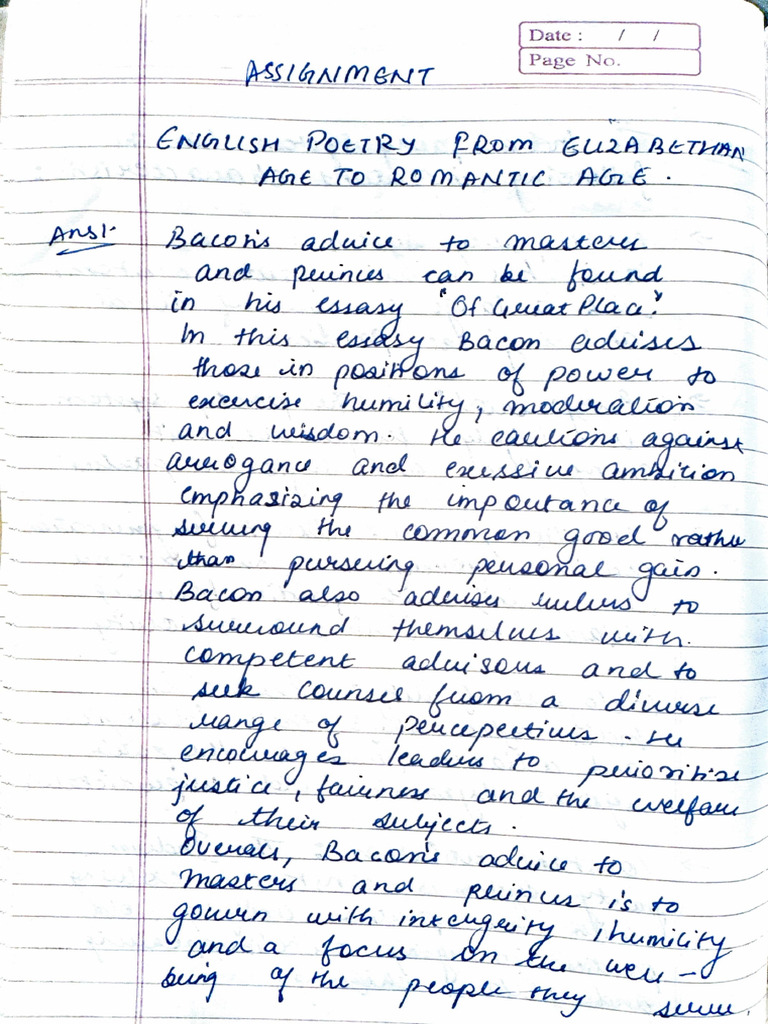 Date : / /
Page No.
ASSIGNMENT
ENGLISH POETRY FROM ELIZABETHAN
AGE TO ROMANTIC AGE.
Ans1-
Bacon's advice to masters
and princes can be found
in his essasy "Of Great Place".
In this essasy Bacon advises
those in positions of power to
excercise humility, moderation
and wisdom. He cautions against
arrogance and exessive ambition
emphasizing the importance of
serving the common good rather
than pursering personal gain.
Bacon also advises rulers to
surround themselves with
competent advisors and to
seek counsel from a diverse
range of percepectives. He
encourages leaders to perioritise
justice, fairness and the welfare
of their subjects.
Overall, Bacon's advice to
masters and princes is to
govern with intergrity, humility
and a focus on the well-
being of the people they serve.